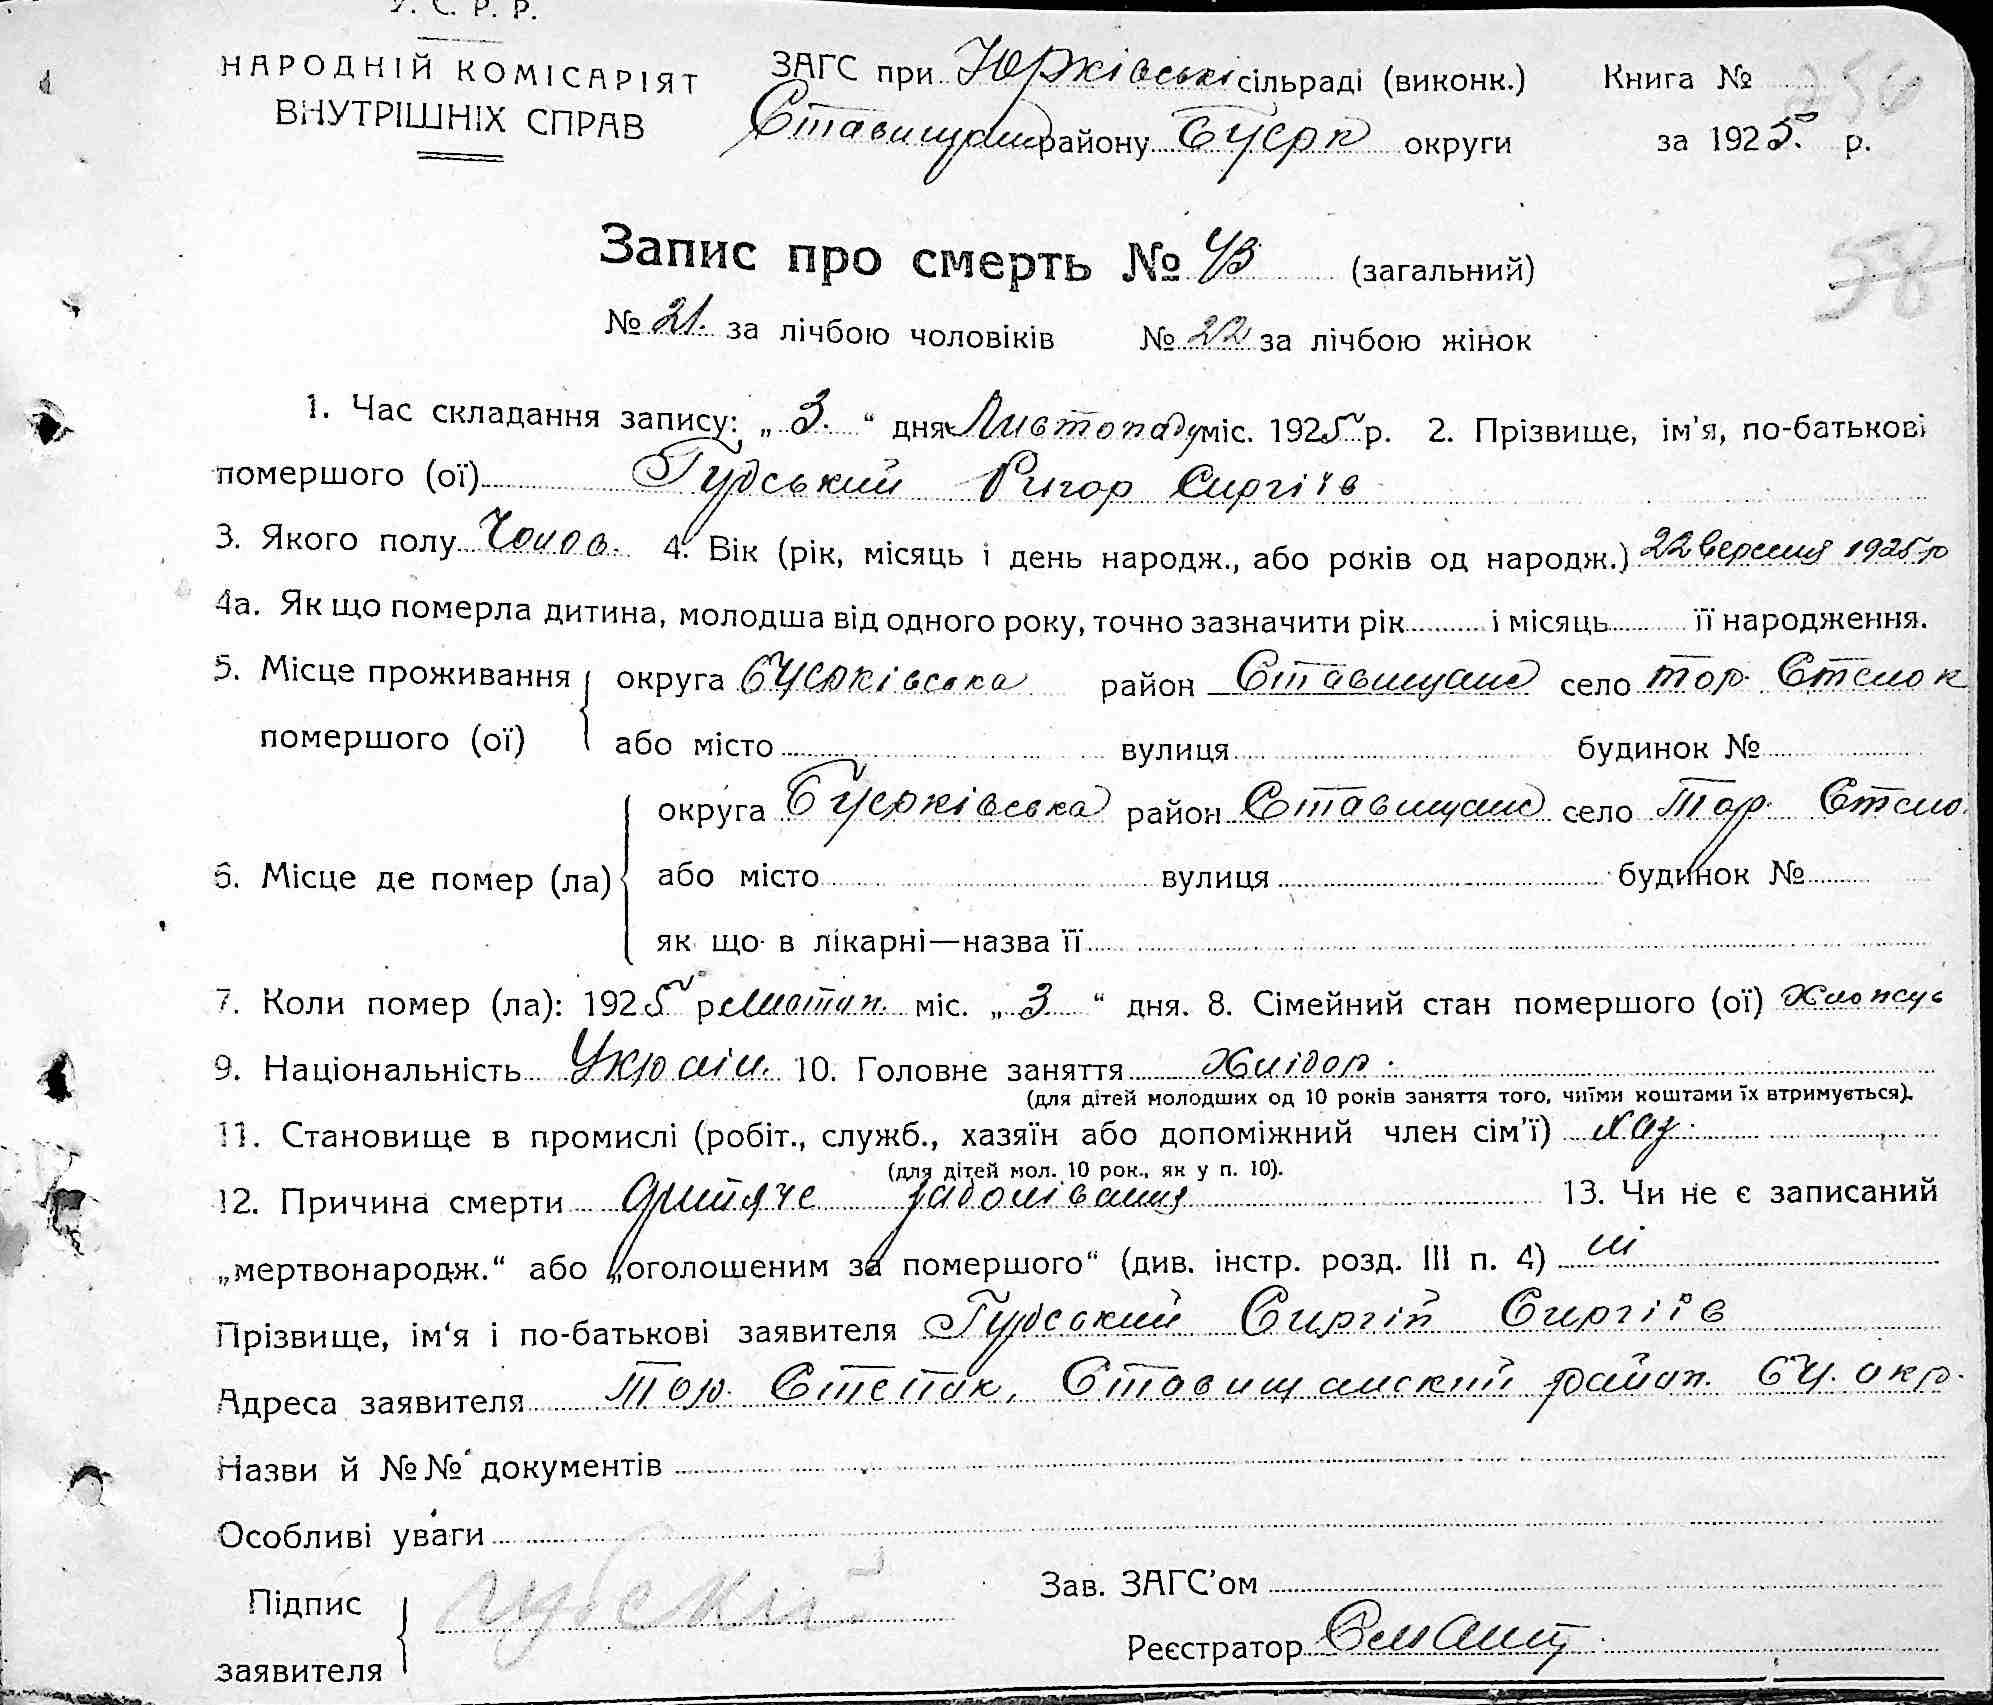 У. С. Р. Р.
НАРОДНІЙ КОМІСАРІЯТ
ВНУТРІШНІХ СПРАВ
ЗАГС при Юрківські сільраді (виконк.) Книга № 256
Ставищан району БЦерк округи за 1925 р.
Запис про смерть № 43 (загальний)
58
№ 21. за лічбою чоловіків № 22 за лічбою жінок
1. Час складання запису: „ 3. “ дня Листопаду міс. 1925 р. 2. Прізвище, ім'я, по-батькові
помершого (ої) Гудський Ригор Сиргіїв
3. Якого полу Чолов. 4. Вік (рік, місяць і день народж., або років од народж.) 22 вересня 1925 р
4а. Як що померла дитина, молодша від одного року, точно зазначити рік і місяць її народження.
5. Місце проживання помершого (ої) округа БЦерківська район Ставищан село тор. Степок
або місто вулиця будинок №
6. Місце де помер (ла) округа БЦерківська район Ставищан село Тор. Степо
або місто вулиця будинок №
як що в лікарні—назва її
7. Коли помер (ла): 1925 р Листоп. міс. „ 3 “ дня. 8. Сімейний стан помершого (ої)
9. Національність Україн. 10. Головне заняття Хлібор.
(для дітей молодших од 10 років заняття того, чиїми коштами їх втримується).
11. Становище в промислі (робіт., служб., хазяїн або допоміжний член сім'ї) хаз.
(для дітей мол. 10 рок., як у п. 10).
12. Причина смерти дитяче заболівання 13. Чи не є записаний
„мертвонародж.“ або „оголошеним за помершого“ (див. інстр. розд. III п. 4) ні
Прізвище, ім'я і по-батькові заявителя Гудський Сиргій Сиргіїв
Адреса заявителя Тор. Степок, Ставищанский район. БЦ. окр.
Назви й №№ документів
Особливі уваги
Підпис заявителя
Зав. ЗАГС'ом
Реєстратор